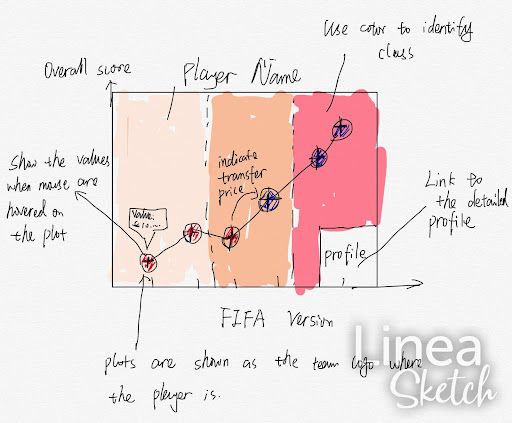 Use color to identify
class
Overall score
Player Name
Show the values
when mouse are
hovered on
the plot
indicate
transfer
price
Value:
Link to
the detailed
profile
profile
FIFA Version
plots are shown as the team logo where
the player is.
Linea
Sketch